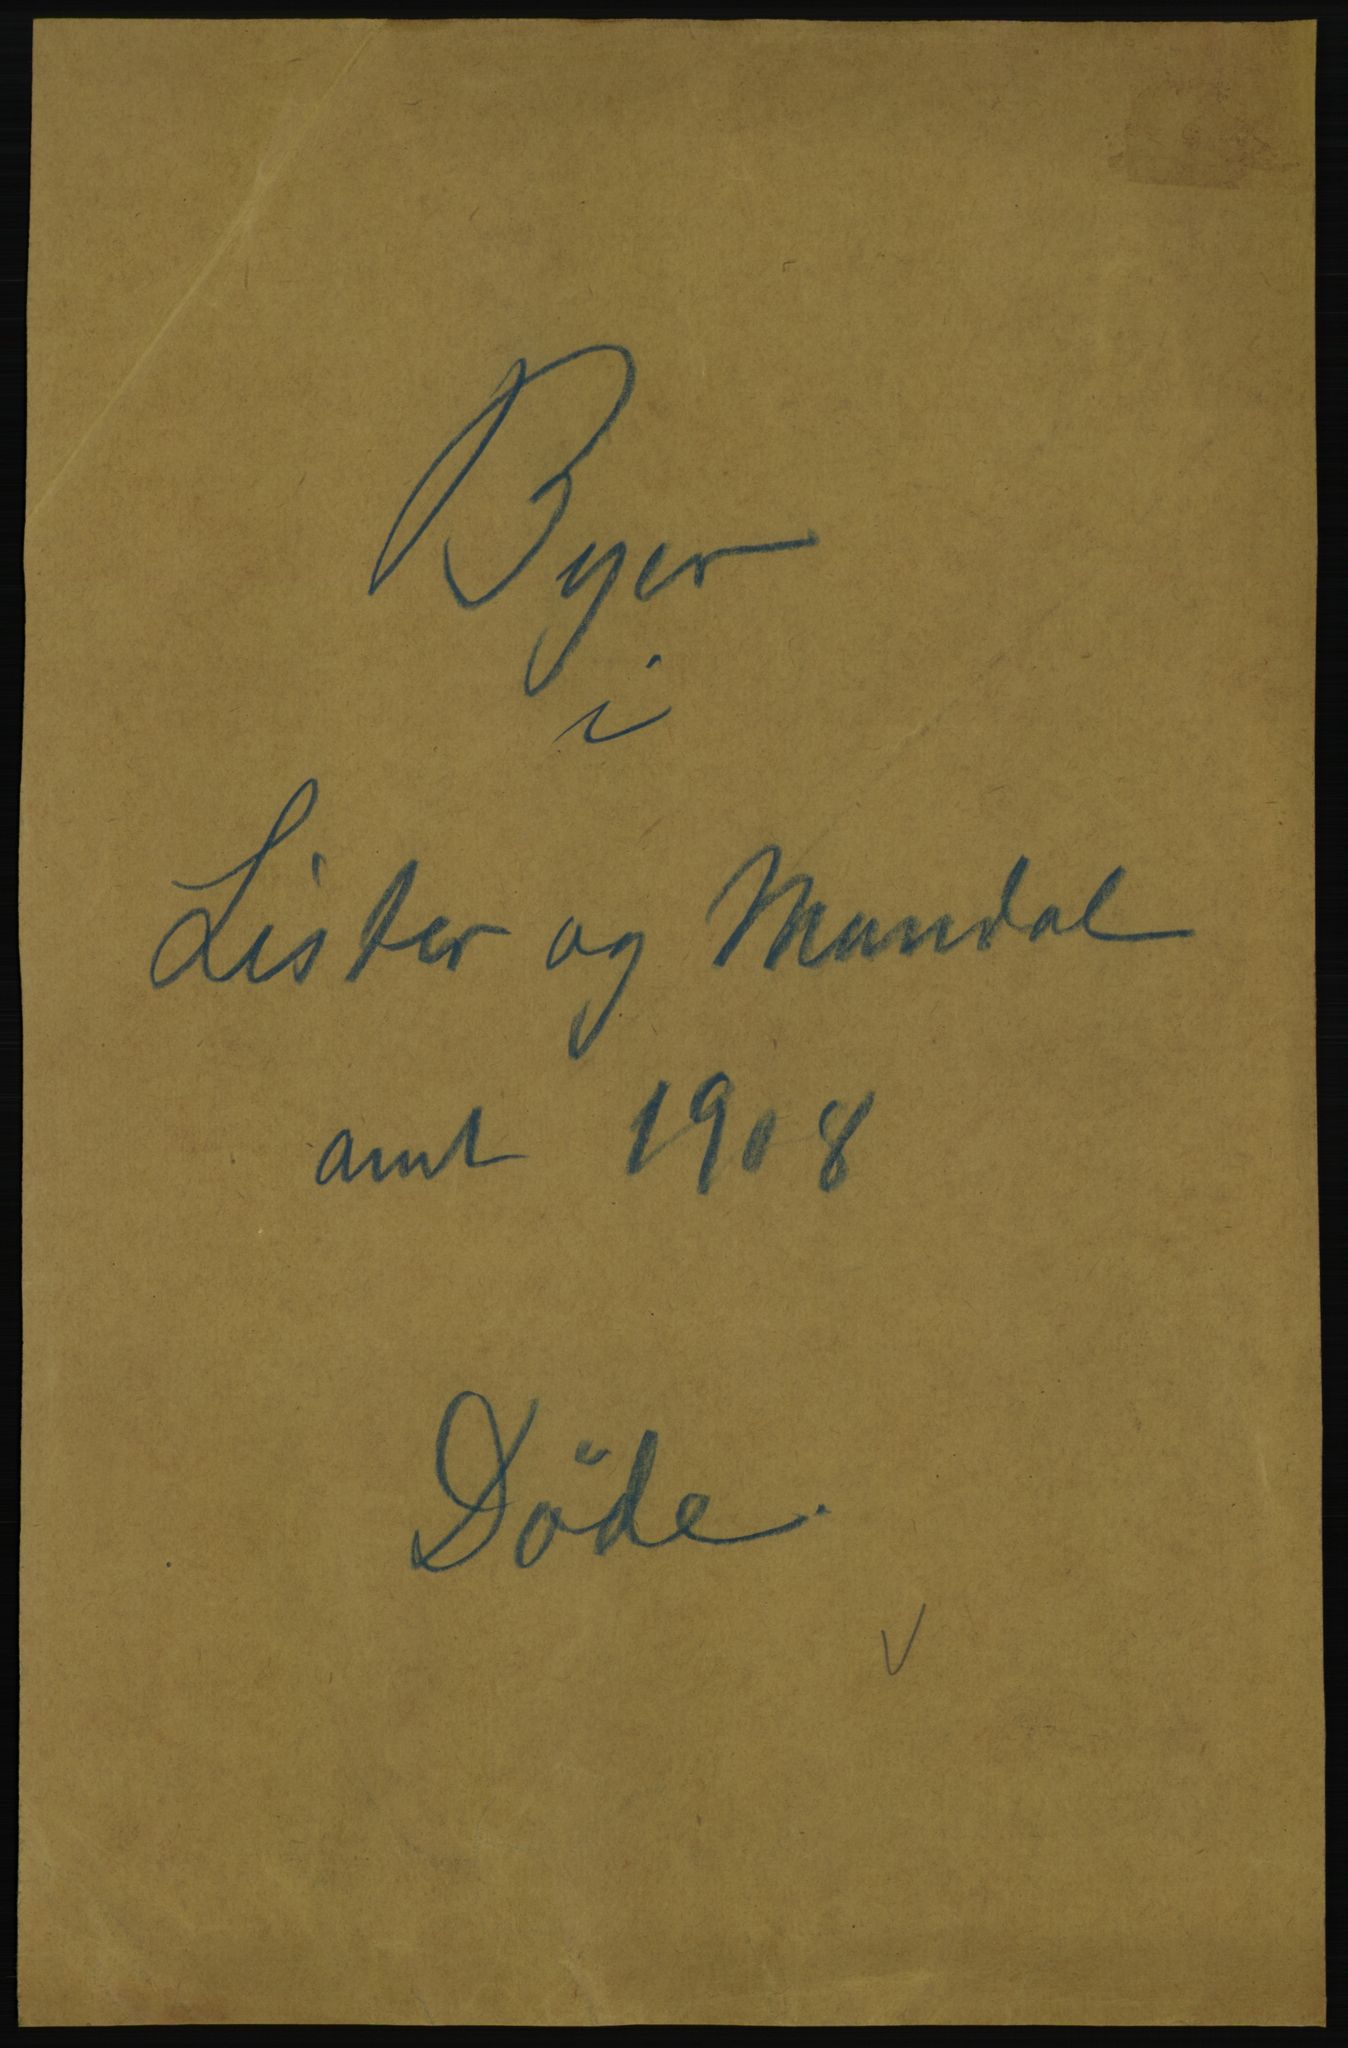 Byer
i
Lister og Mandal
amt 1908
Döde.